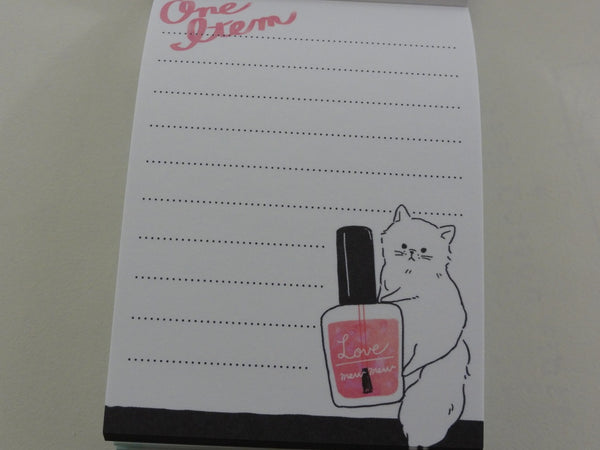 One
Item
Love
mew mew